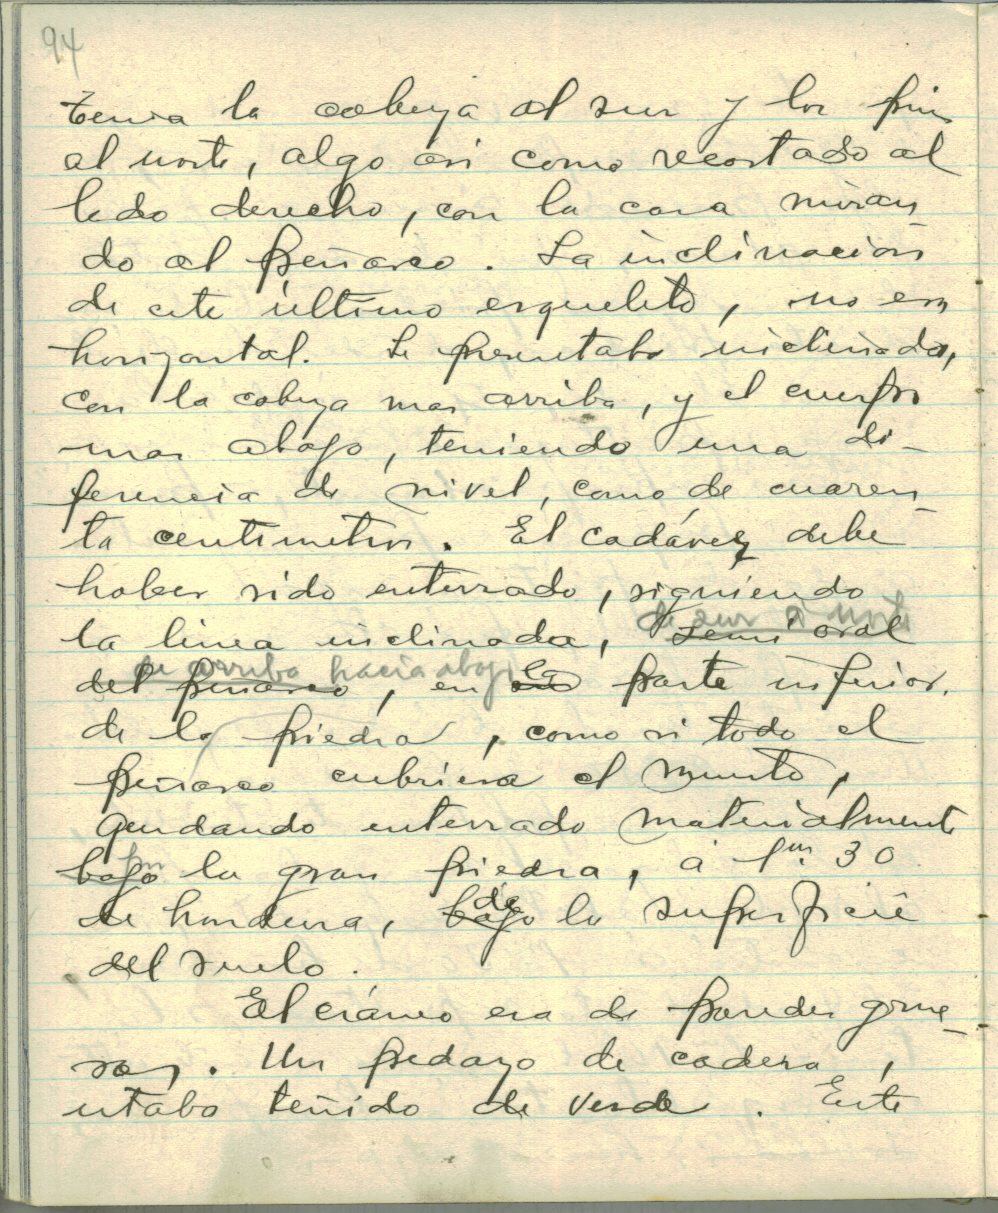 94
tenia la cabeza al sur y los pies
al norte, algo asi como recostado al
lado derecho, con la cara miran
do al peñasco. La inclinación
de este último esqueleto, no era
horizontal. Se presentaba inclinada,
con la cabeza mas arriba, y el cuerpo
mas abajo, teniendo una di-
ferencia de nivel, como de cuaren-
ta centimetros. El cadáver debe
haber sido enterrado, siguiendo
de sur á norte
la linea inclinada, semi oval
de arriba hacia abajo
del peñasco, en la parte inferior.
de la piedra, como si todo el
peñasco cubriera el muerto,
quedando enterrado materialmente
bajo la gran piedra, á 1m. 30
de hondura, bajo de la superficie
del suelo.
El cráneo era de paredes grue-
sas. Un pedazo de cadera,
estaba teñido de verde. Este